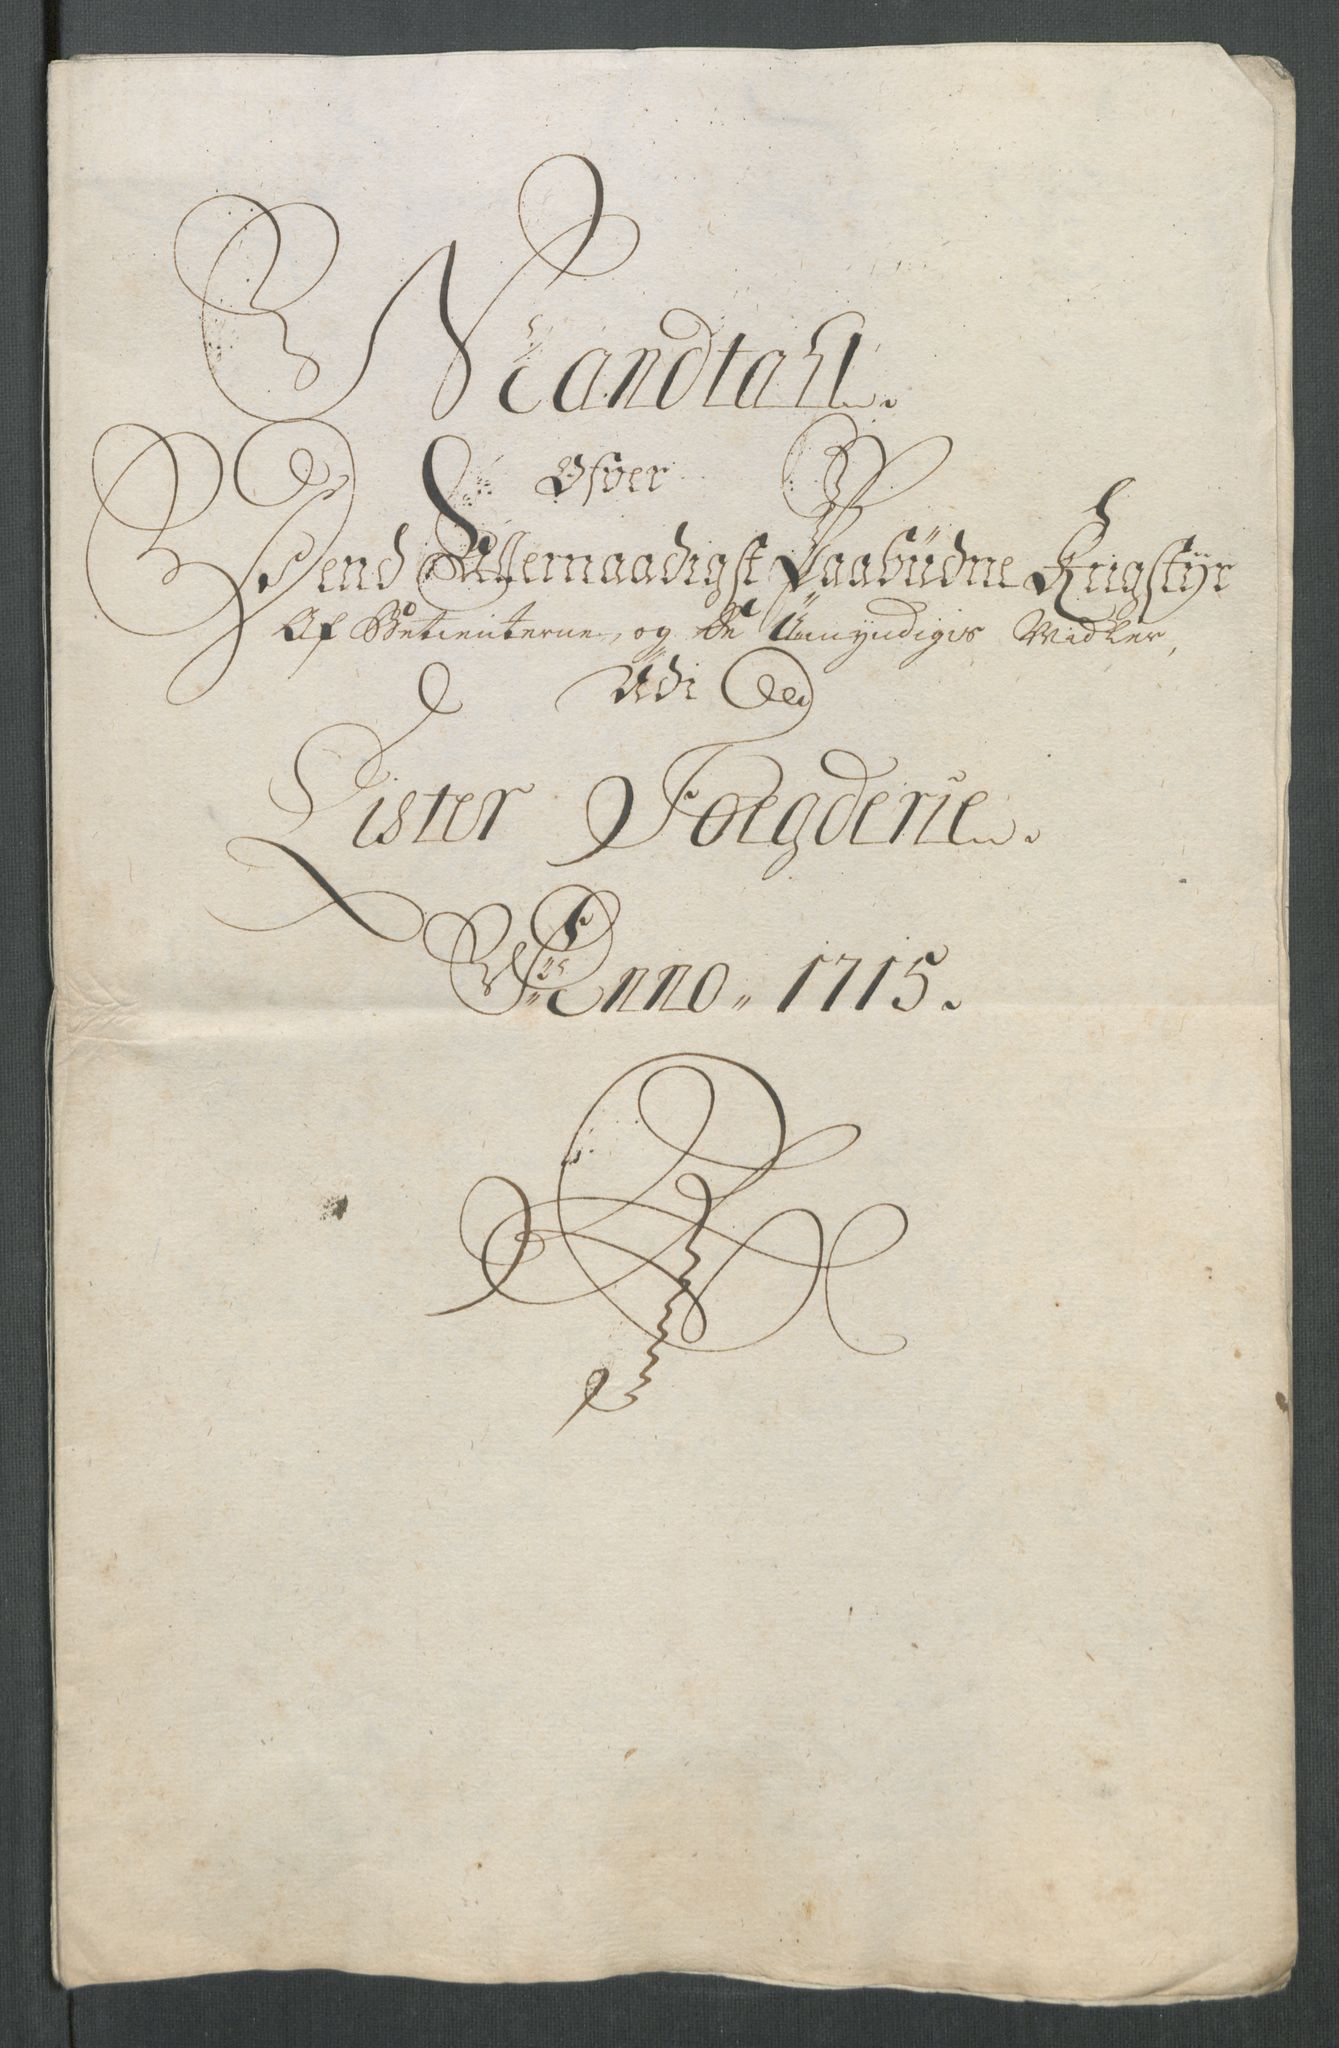 Mandtall.
Ofver
Dend Allernaadigst Paabüdne Krigstÿr
Af Betienterne, og de Umyndigis Midler,
Üdi
Lister Foegderie.
Anno 1715.